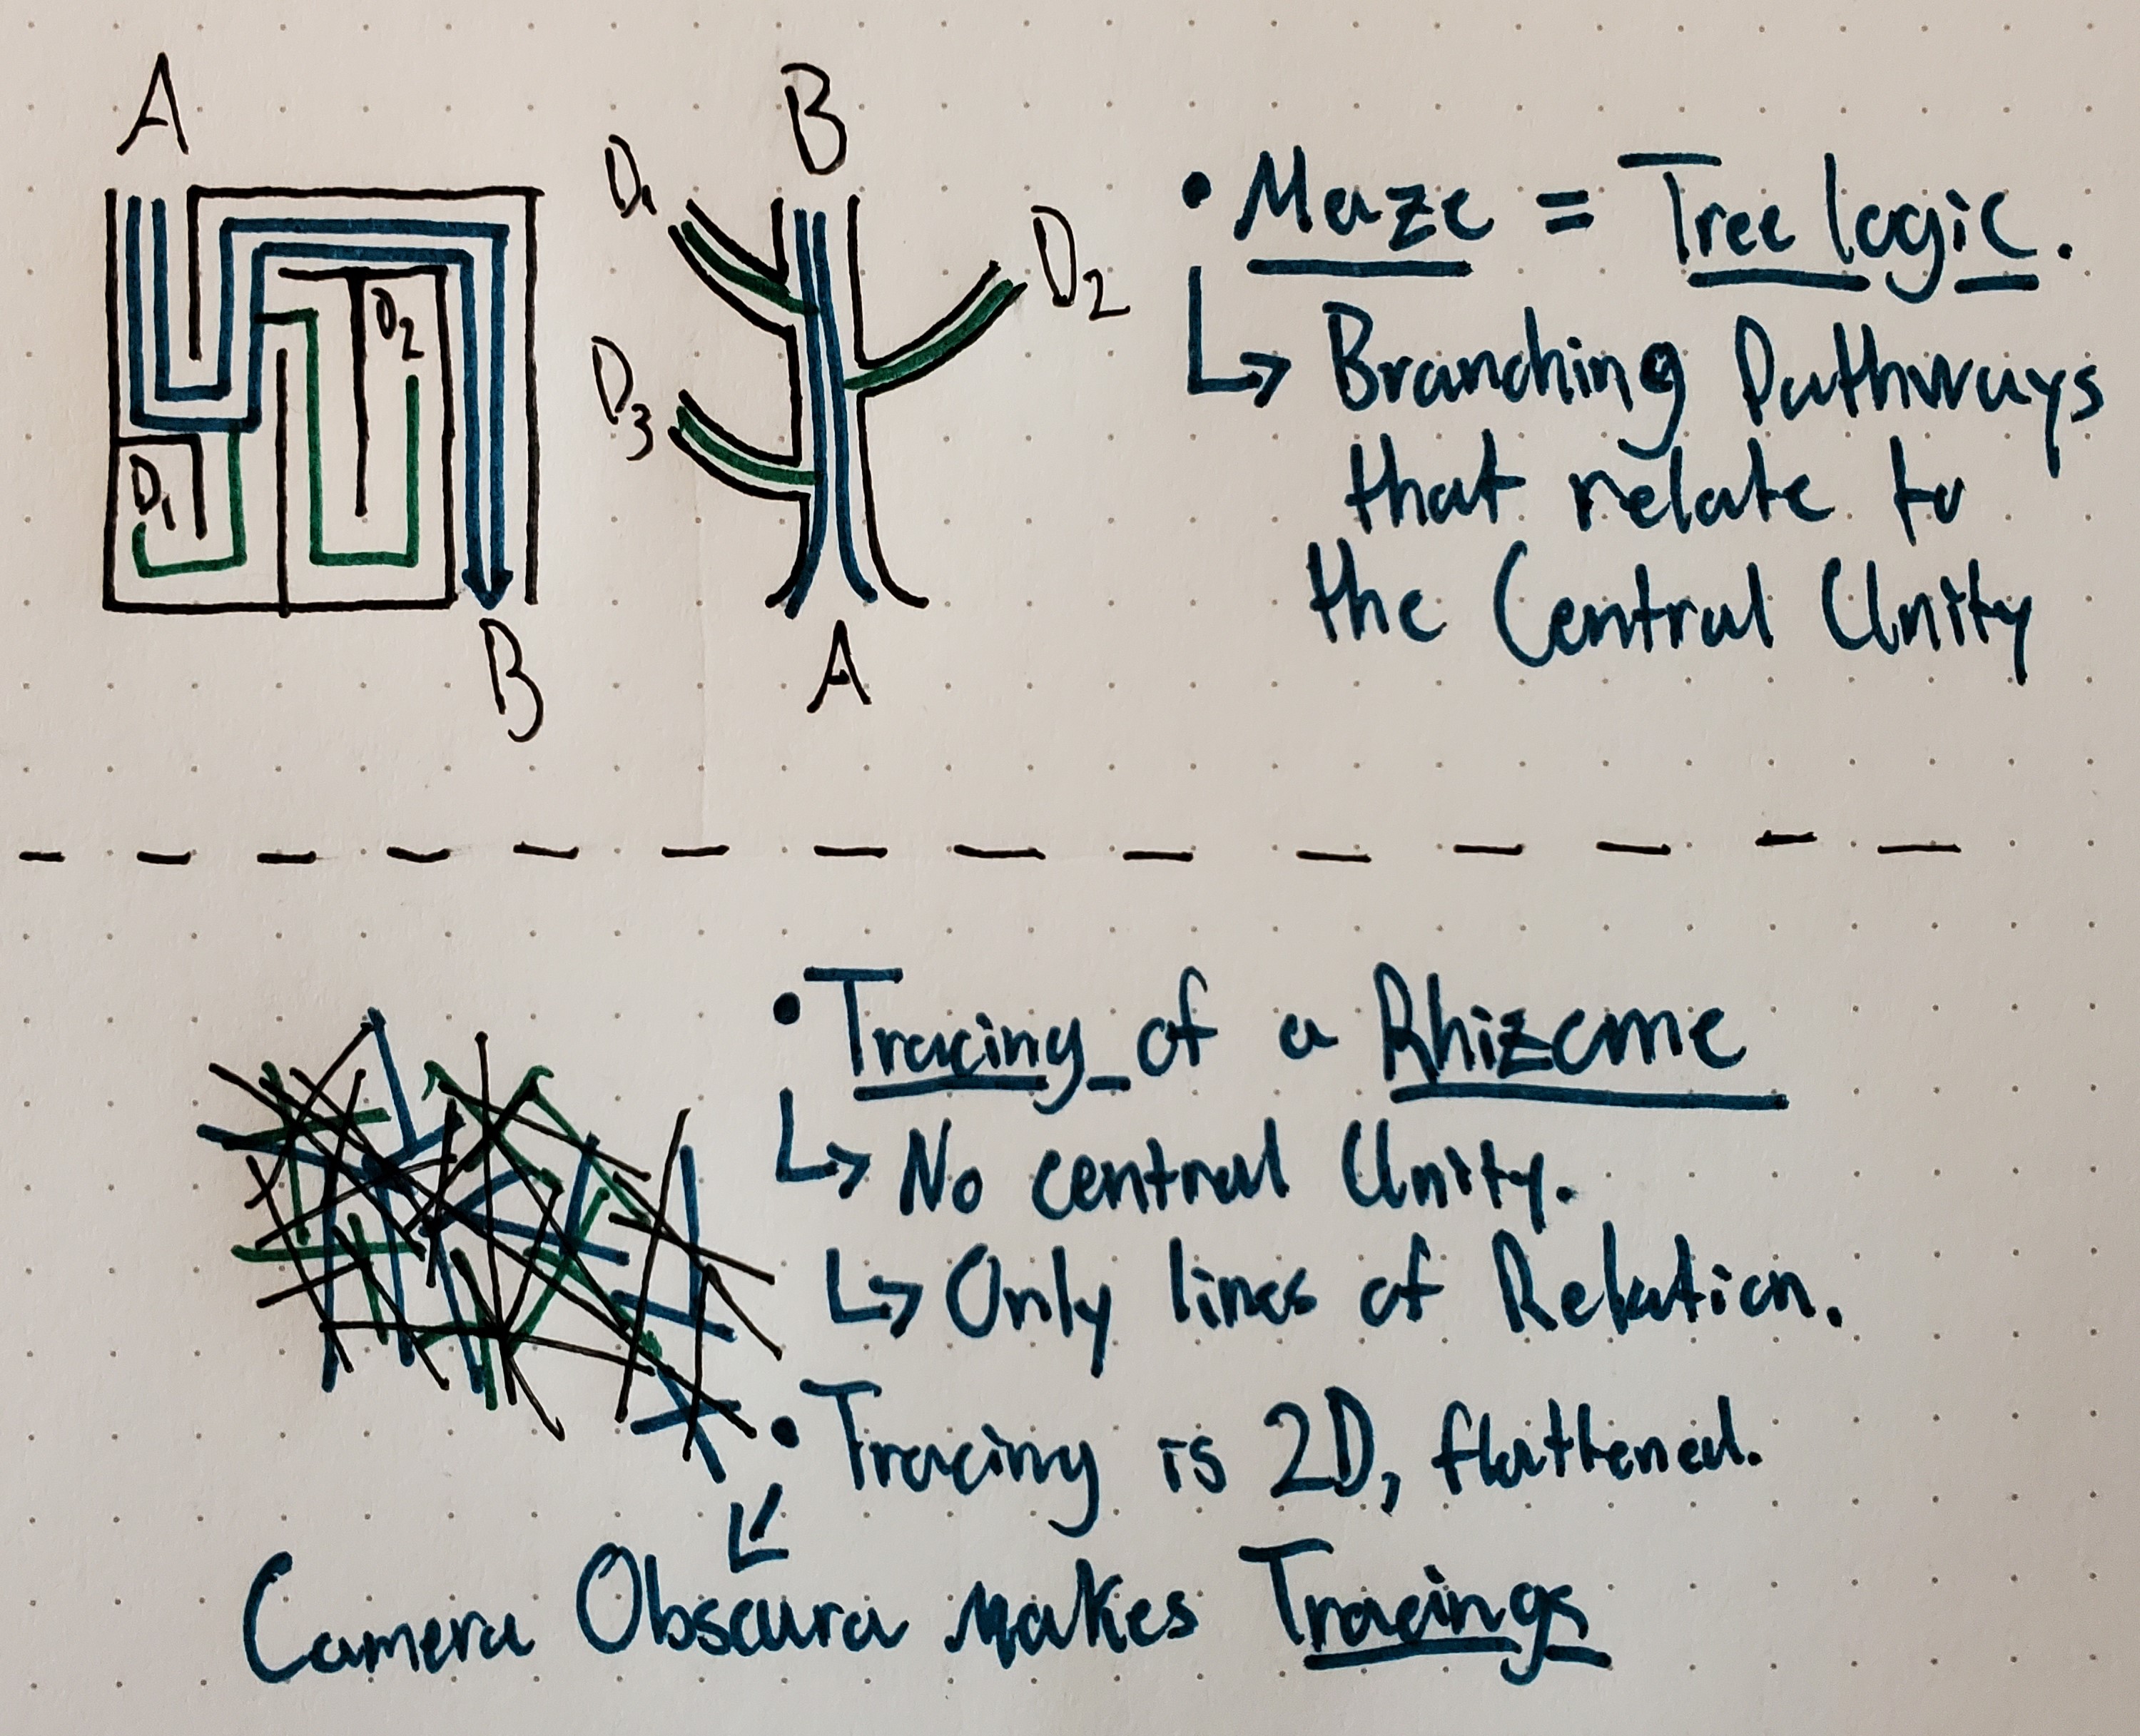 A
B
D1
D2
D3
D2
D1
B
A
• Maze = Tree logic.
↳ Branching Pathways
that relate to
the Central Unity
• Tracing of a Rhizome
↳ No central Unity.
↳ Only lines of Relation.
• Tracing is 2D, flattened.
Camera Obscura makes Tracings